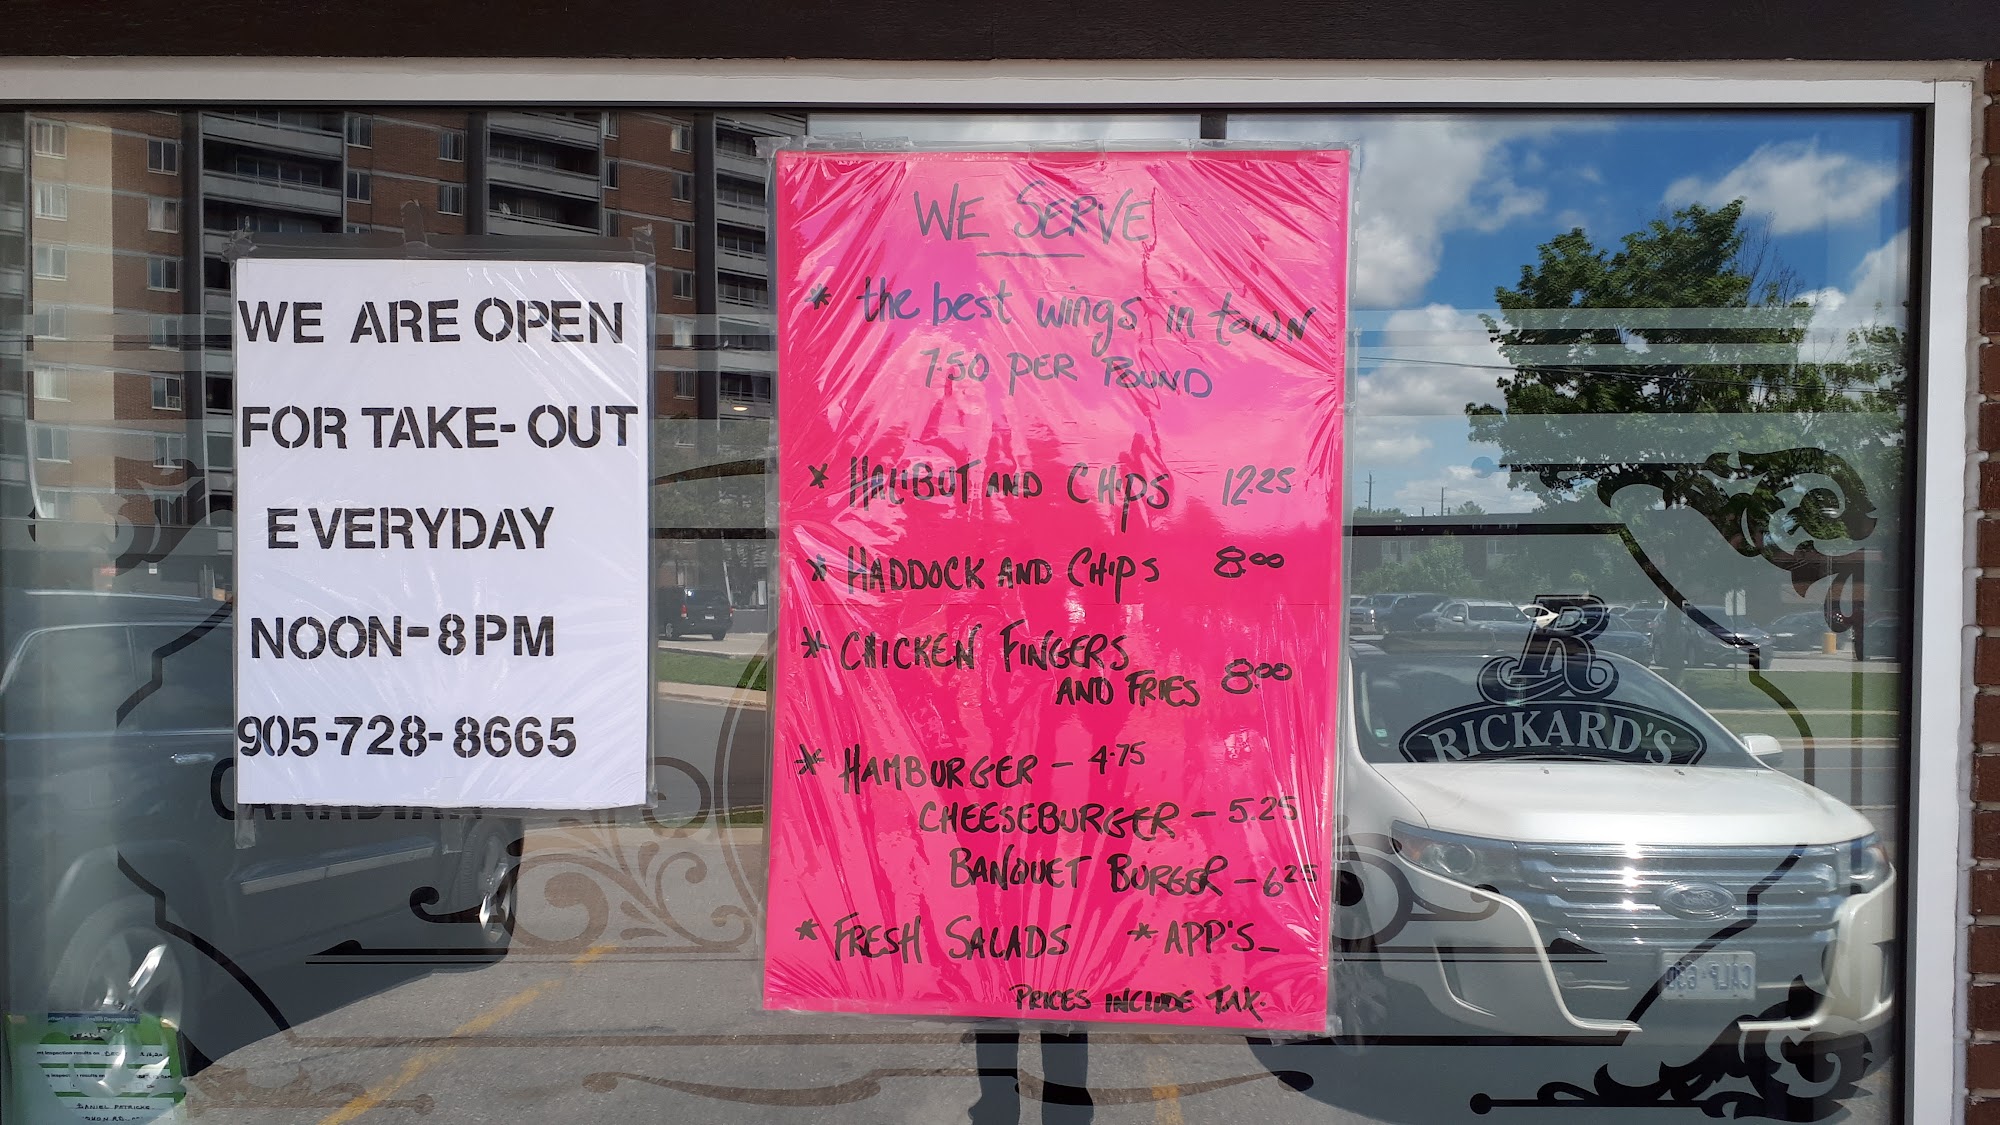 WE ARE OPEN
FOR TAKE-OUT
EVERYDAY
NOON-8PM
905-728-8665
WE SERVE
* the best wings in town
7.50 PER POUND
* HALIBUT AND CHIPS 12.25
* HADDOCK AND CHIPS 8.00
* CHICKEN FINGERS
AND FRIES 8.00
* HAMBURGER - 4.75
CHEESEBURGER - 5.25
BANQUET BURGER - 6.25
* FRESH SALADS * APP'S_
PRICES INCLUDE TAX.
R
RICKARD'S
CANADIAN
Ford
DANIEL PATRICKS